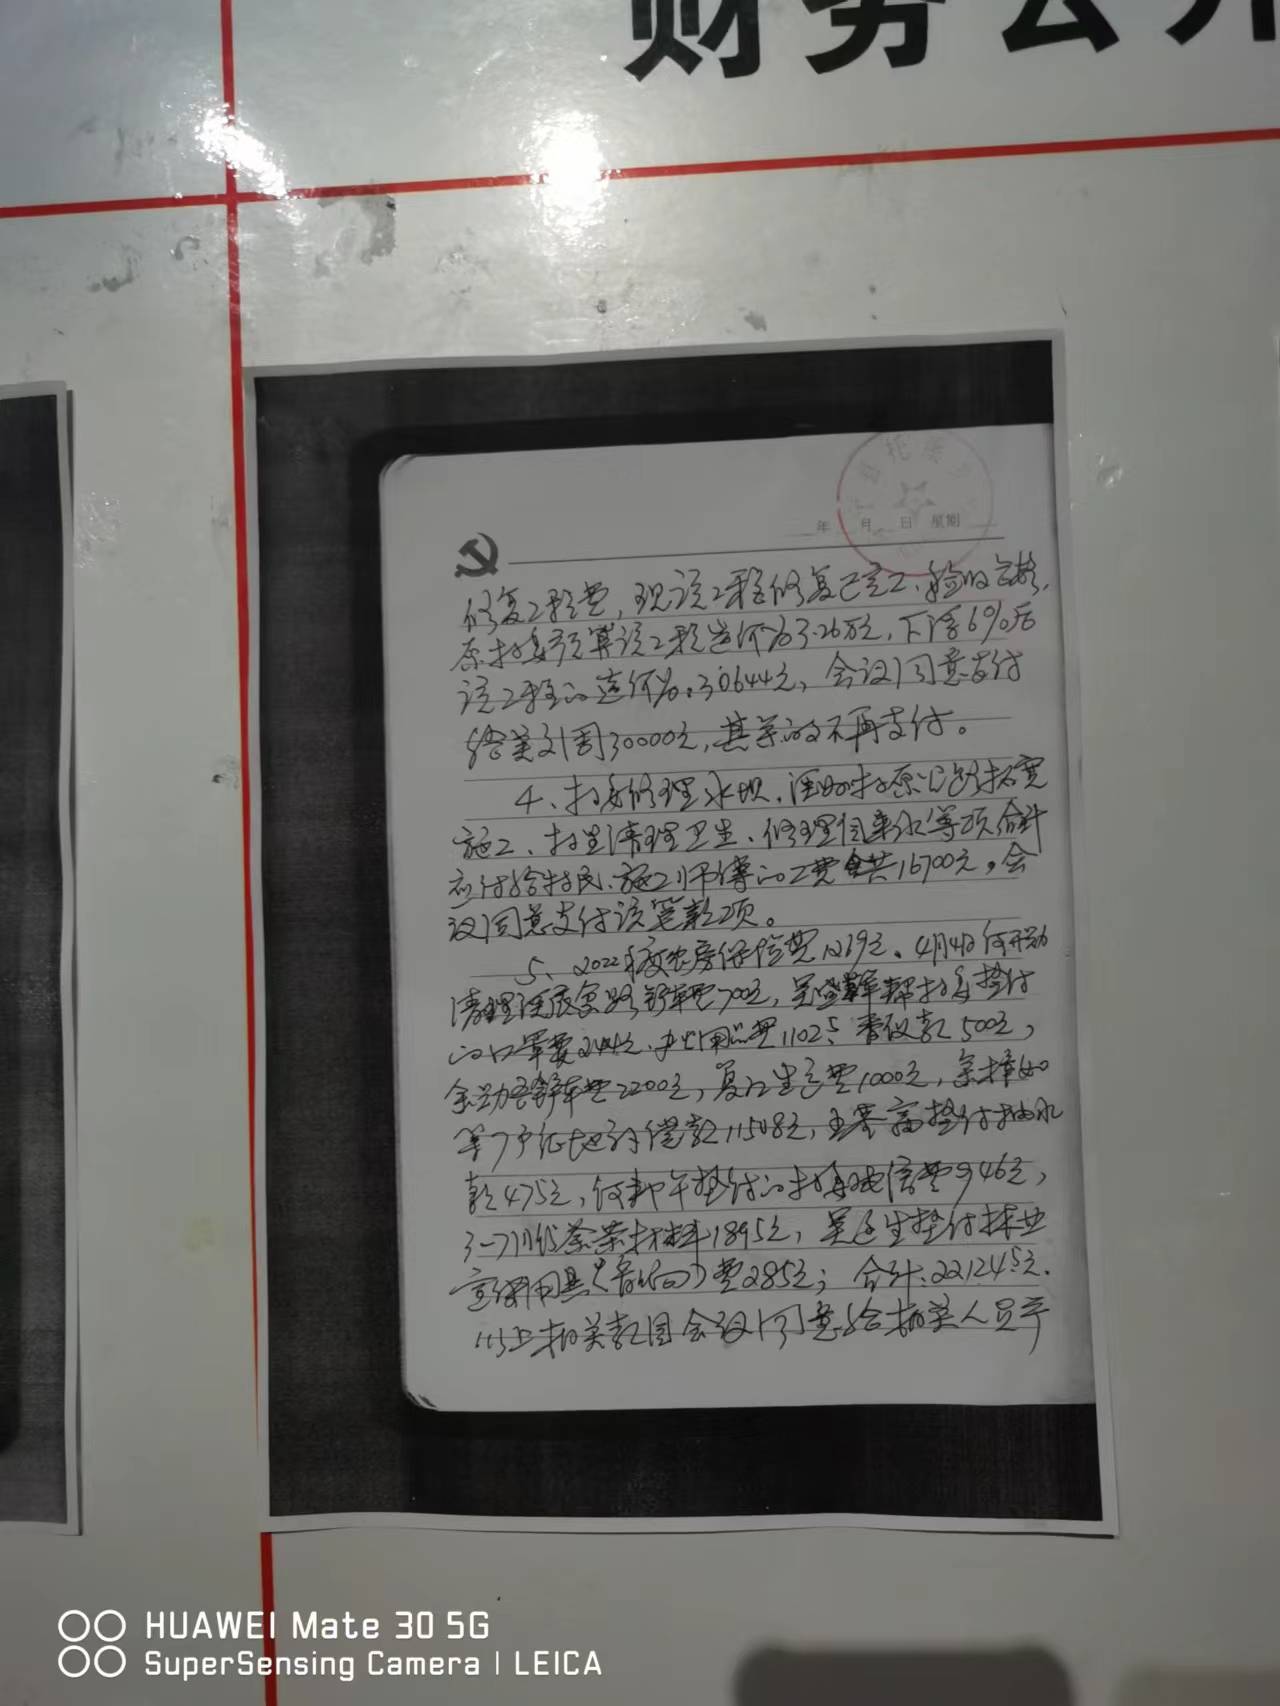 财务公开
年 月 日 星期
修复工程费，现该工程修复已完工、验收合格，
原村委预算该工程造价为3.26万元，下浮6%后
该工程的造价为：30644元，会议同意支付
给姜文周30000元，其余的不再支付。
4、村委修理水坝、 村原公路拓宽
施工、村里清理卫生、修理自来水等项合计
应付给村民、施工师傅的工费共16700元。会
议同意支付该笔款项。
5、2022年度农房保险费1269元、4月4日何开勋
清理 路铲车费700元，吴 军帮村委垫付
的口罩费244元、 费1102.5 款500元，
余 铲车费2200元，复 费1000元，余
等7户征地 款11508元，王 垫付抽水
款475元，何 年垫付的村委电信费946元，
3-7 材料1895元，吴 生垫付林业
宣传用具（音响）费285元；合计：22124.5元.
以上相关款目会议同意给相关人员
HUAWEI Mate 30 5G
SuperSensing Camera | LEICA